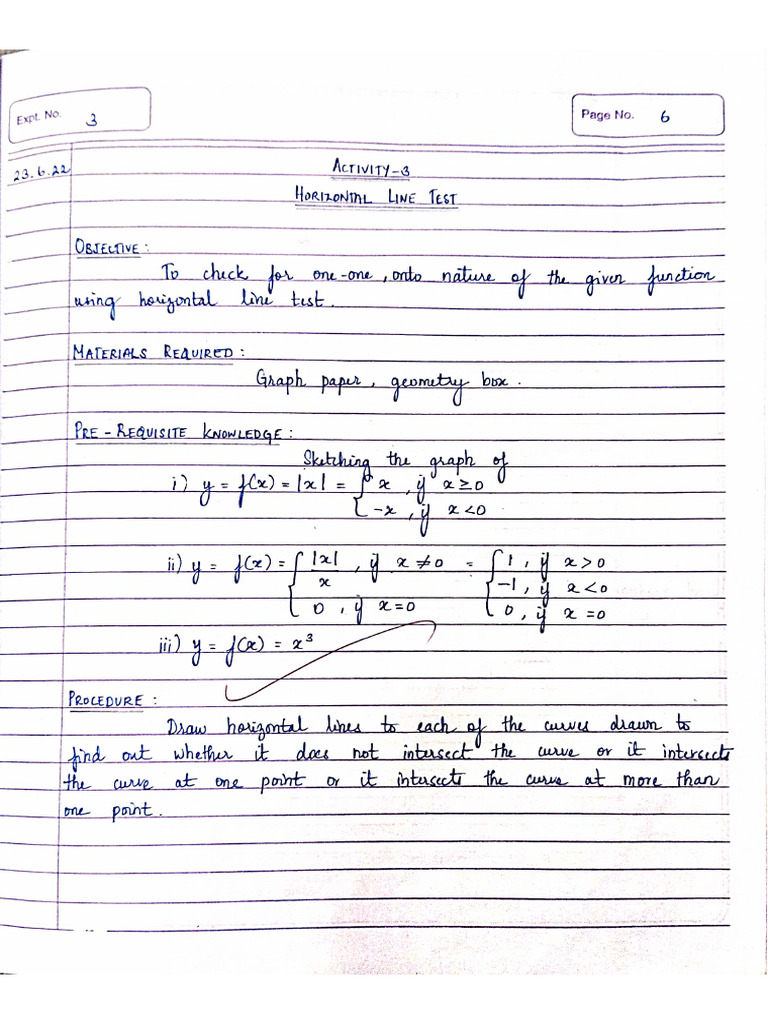 Expt. No. 3
Page No. 6
23.6.22
ACTIVITY-3
HORIZONTAL LINE TEST
OBJECTIVE:
To check for one-one, onto nature of the given function
using horizontal line test.
MATERIALS REQUIRED:
Graph paper, geometry box.
PRE-REQUISITE KNOWLEDGE:
Sketching the graph of
i) y = f(x) = |x| = { x , if x ≥ 0
-x , if x < 0
ii) y = f(x) = { |x|/x , if x ≠ 0 = { 1 , if x > 0
-1 , if x < 0
0 , if x = 0 0 , if x = 0
iii) y = f(x) = x³
PROCEDURE:
Draw horizontal lines to each of the curves drawn to
find out whether it does not intersect the curve or it intersects
the curve at one point or it intersects the curve at more than
one point.